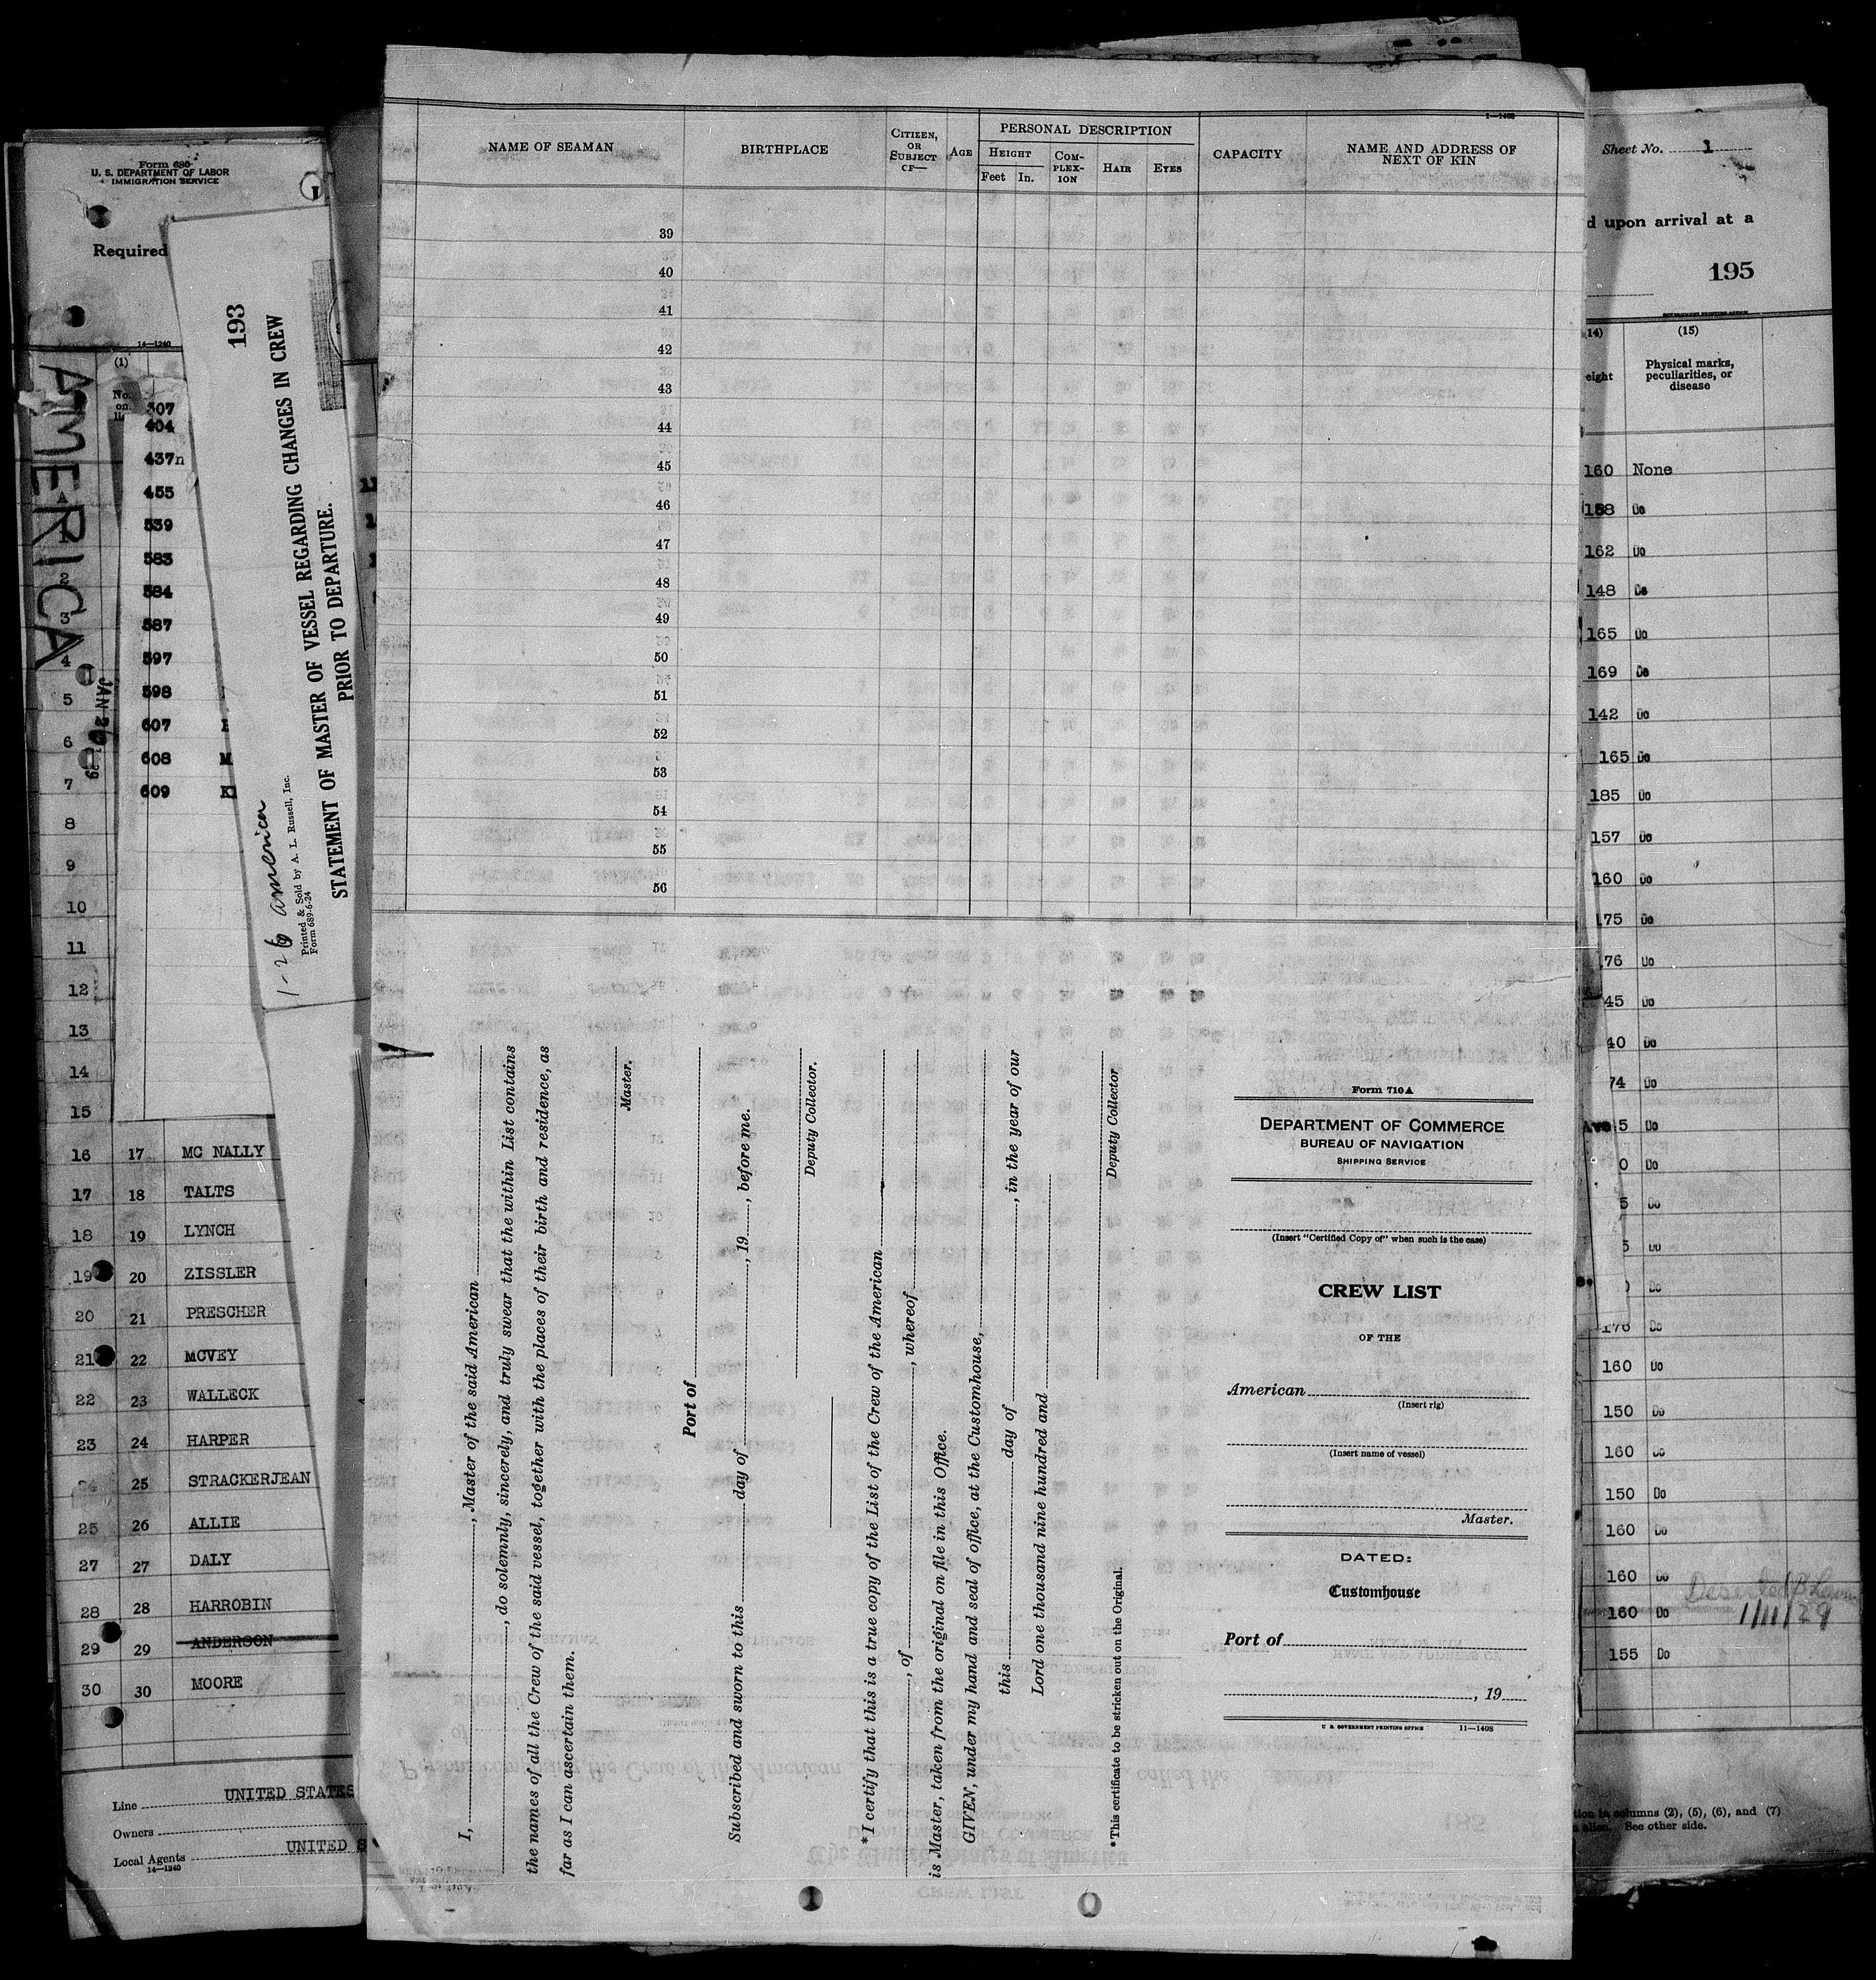 Form 680
U. S. DEPARTMENT OF LABOR
IMMIGRATION SERVICE
Required
14—1240
AMERICA
JAN 26
(1)
No. on
307
404
437n
455
539
583
584
587
597
598
607
608 M
609 K
1
2
3
4
5
6
7
8
9
10
11
12
13
14
15
16 17 MC NALLY
17 18 TALTS
18 19 LYNCH
19 20 ZISSLER
20 21 PRESCHER
21 22 MCVEY
22 23 WALLECK
23 24 HARPER
24 25 STRACKERJEAN
25 26 ALLIE
27 27 DALY
28 28 HARROBIN
29 29 ANDERSON
30 30 MOORE
Line UNITED STATES
Owners
Local Agents UNITED S
14—1240
193
1-26 america
Printed & Sold by A. L. Russell, Inc.
Form 689-6-24
STATEMENT OF MASTER OF VESSEL REGARDING CHANGES IN CREW
PRIOR TO DEPARTURE.
1—1408
NAME OF SEAMAN
BIRTHPLACE
CITIZEN, OR SUBJECT OF—
AGE
PERSONAL DESCRIPTION
HEIGHT
Feet In.
COM-PLEX-ION
HAIR
EYES
CAPACITY
NAME AND ADDRESS OF NEXT OF KIN
39
40
41
42
43
44
45
46
47
48
49
50
51
52
53
54
55
56
I, , Master of the said American
, do solemnly, sincerely, and truly swear that the within List contains
the names of all the Crew of the said vessel, together with the places of their birth and residence, as
far as I can ascertain them.
Master.
Port of
Subscribed and sworn to this day of , 19 , before me.
Deputy Collector.
*I certify that this is a true copy of the List of the Crew of the American
, of , whereof
is Master, taken from the original on file in this Office.
GIVEN, under my hand and seal of office, at the Customhouse,
this day of , in the year of our
Lord one thousand nine hundred and
Deputy Collector
*This certificate to be stricken out on the Original.
Form 710A
DEPARTMENT OF COMMERCE
BUREAU OF NAVIGATION
SHIPPING SERVICE
(Insert "Certified Copy of" when such is the case)
CREW LIST
OF THE
American
(Insert rig)
(Insert name of vessel)
Master.
DATED:
Customhouse
Port of
, 19
U. S. GOVERNMENT PRINTING OFFICE 11—1408
Sheet No. 1
d upon arrival at a
195
GOVERNMENT PRINTING OFFICE
14) (15)
eight
Physical marks, peculiarities, or disease
160 None
158 Do
162 Do
148 Do
165 Do
169 Do
142 Do
165 Do
185 Do
157 Do
160 Do
175 Do
76 Do
45 Do
40 Do
74 Do
Ave. 5 Do
0 Do
5 Do
5 Do
Do
170 Do
160 Do
150 Do
160 Do
150 Do
160 Do
160 Do
160 Do
Deserted
1/11/29
155 Do
tion in columns (2), (5), (6), and (7)
alien. See other side.